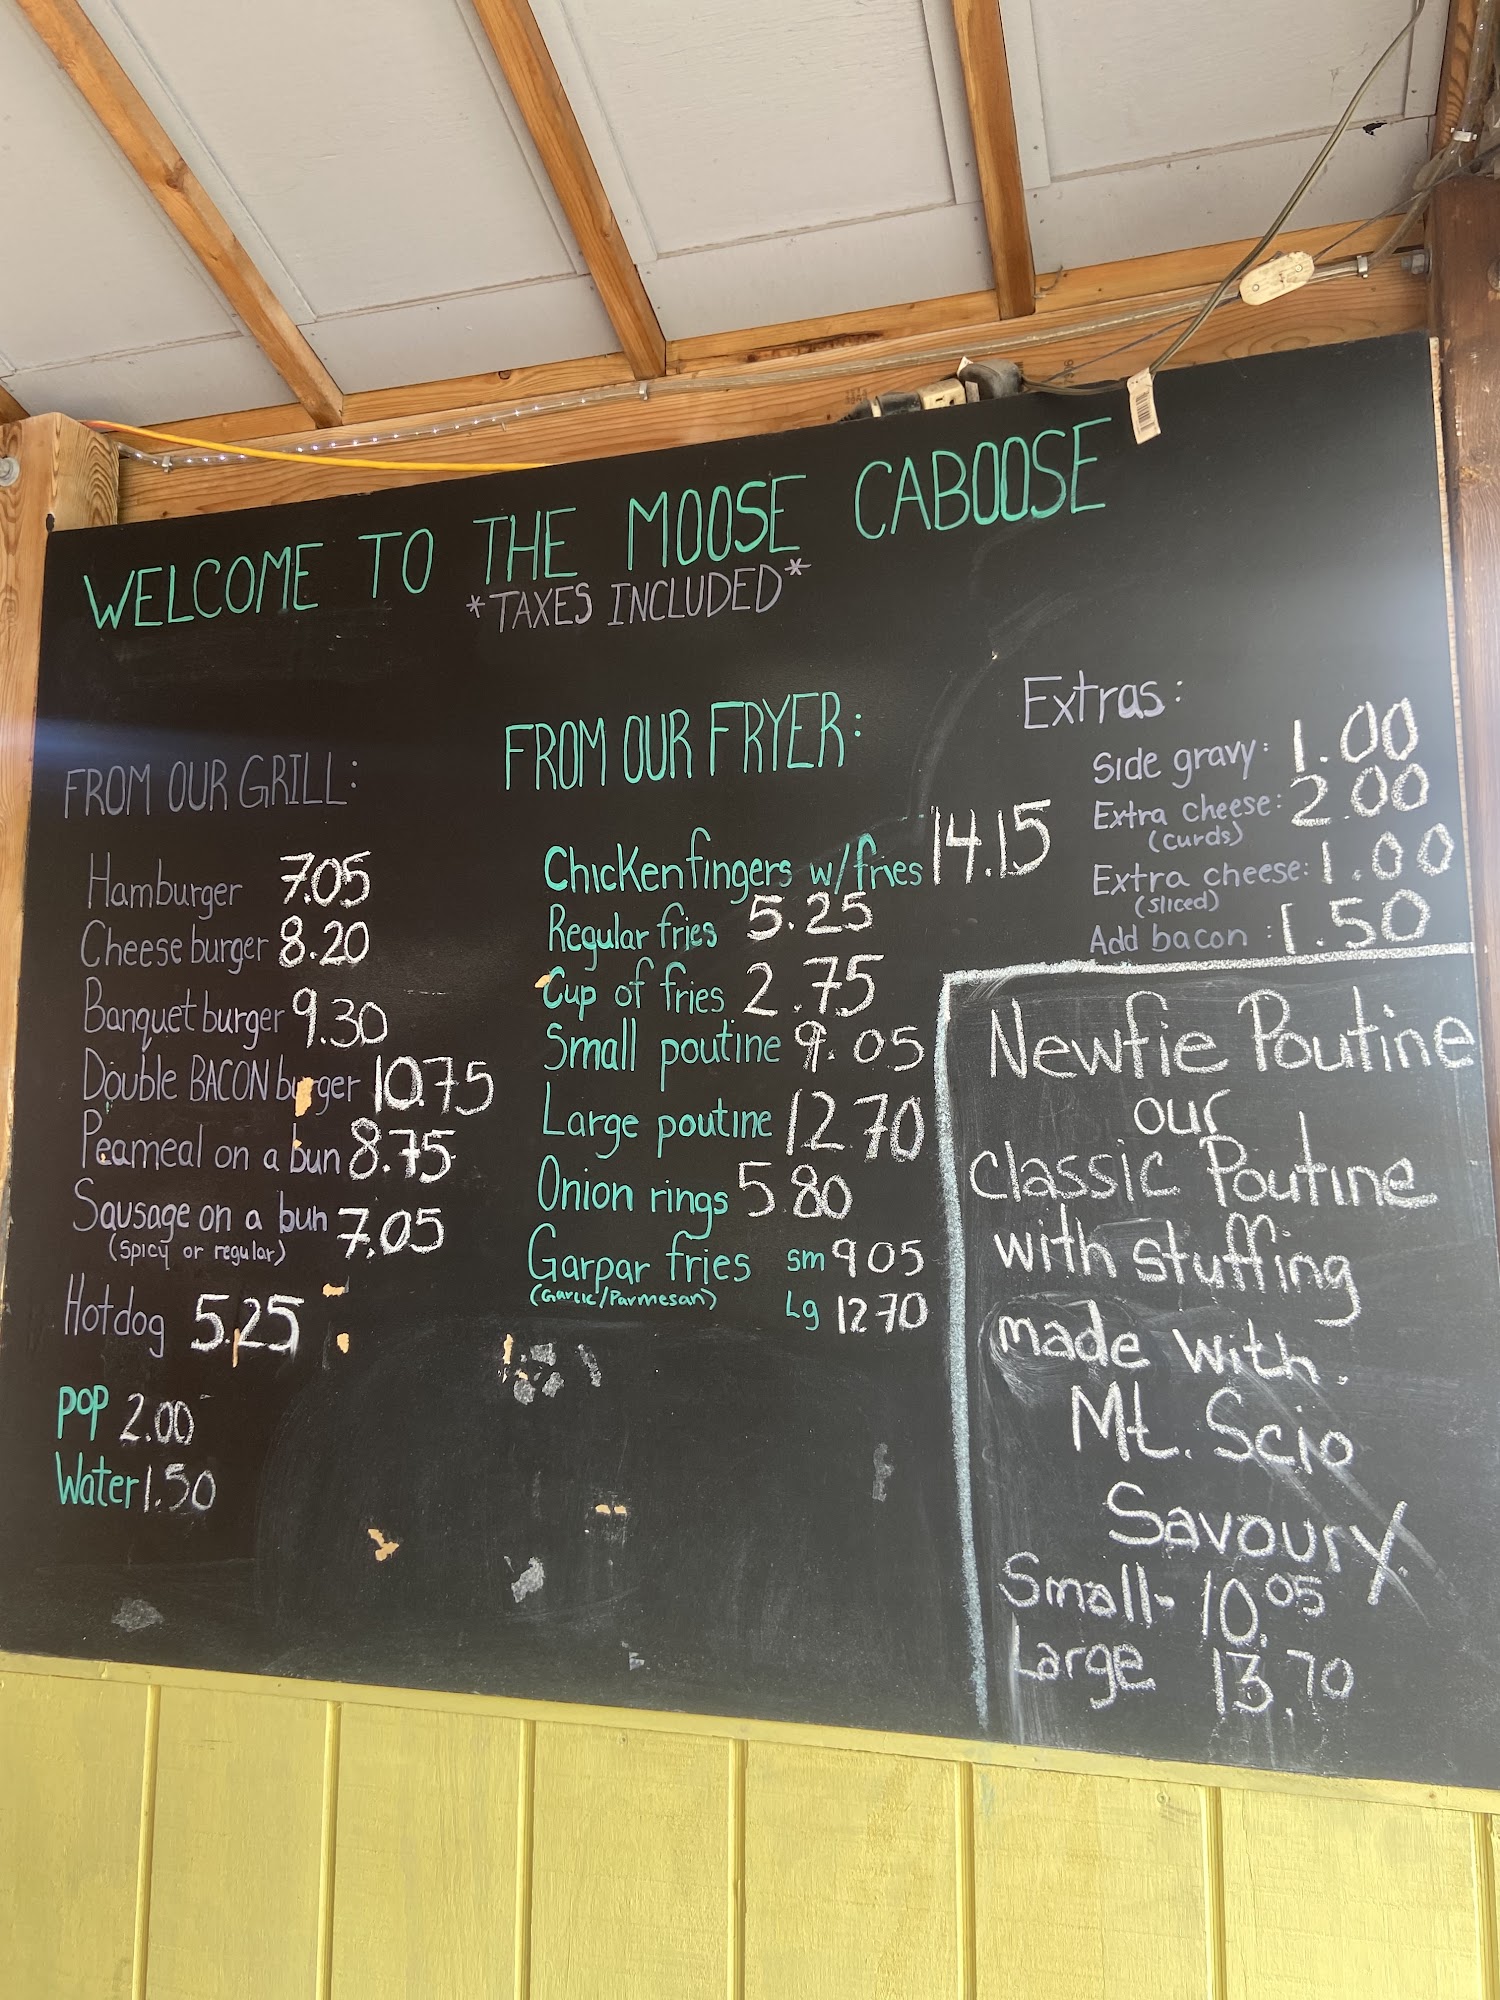 WELCOME TO THE MOOSE CABOOSE
*TAXES INCLUDED*
FROM OUR GRILL:
Hamburger 7.05
Cheeseburger 8.20
Banquet burger 9.30
Double BACON burger 10.75
Peameal on a bun 8.75
Sausage on a bun 7.05
(spicy or regular)
Hotdog 5.25
POP 2.00
Water 1.50
FROM OUR FRYER:
Chicken fingers w/fries 14.15
Regular fries 5.25
Cup of fries 2.75
Small poutine 9.05
Large poutine 12.70
Onion rings 5.80
Garpar fries sm 9.05
(Garlic/Parmesan) Lg 12.70
Extras:
Side gravy: 1.00
Extra cheese: 2.00
(curds)
Extra cheese: 1.00
(sliced)
Add bacon : 1.50
Newfie Poutine
our
Classic Poutine
with stuffing
made with.
Mt. Scio
Savoury.
Small- 10.05
Large 13.70